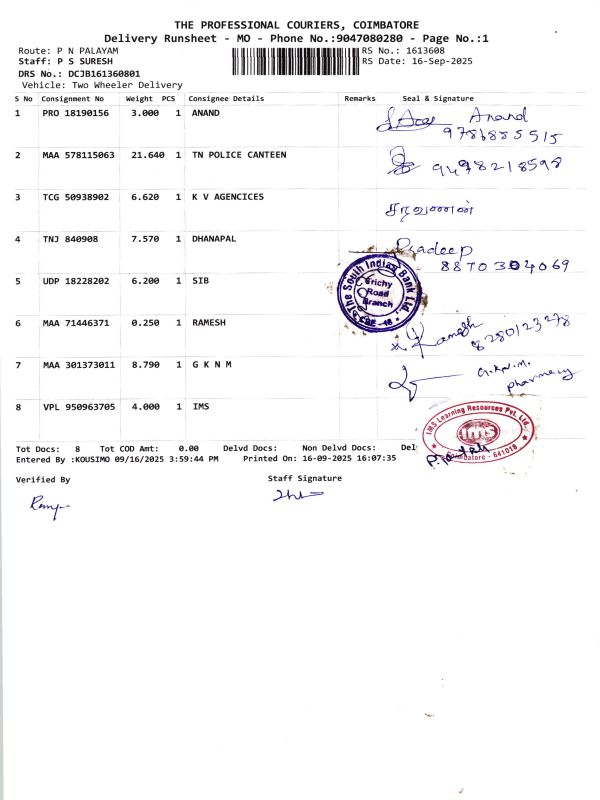 THE PROFESSIONAL COURIERS, COIMBATORE
Delivery Runsheet - MO - Phone No.:9047080280 - Page No.:1
Route: P N PALAYAM RS No.: 1613608
Staff: P S SURESH RS Date: 16-Sep-2025
DRS No.: DCJB161360801
Vehicle: Two Wheeler Delivery
S No Consignment No Weight PCS Consignee Details Remarks Seal & Signature
1 PRO 18190156 3.000 1 ANAND Anand
9786885515
2 MAA 578115063 21.640 1 TN POLICE CANTEEN 9498218598
3 TCG 50938902 6.620 1 K V AGENCICES சரவணன்
4 TNJ 840908 7.570 1 DHANAPAL Pradeep
8870304069
5 UDP 18228202 6.200 1 SIB The South Indian Bank Ltd.
Trichy
Road
Branch
CBE-18
6 MAA 71446371 0.250 1 RAMESH Ramesh
8280123278
7 MAA 301373011 8.790 1 G K N M G.K.N.M.
pharmacy
8 VPL 950963705 4.000 1 IMS IMS Learning Resources Pvt. Ltd.
IMS
Coimbatore - 641018
Tot Docs: 8 Tot COD Amt: 0.00 Delvd Docs: Non Delvd Docs: Del
Entered By :KOUSIMO 09/16/2025 3:59:44 PM Printed On: 16-09-2025 16:07:35
Verified By Staff Signature